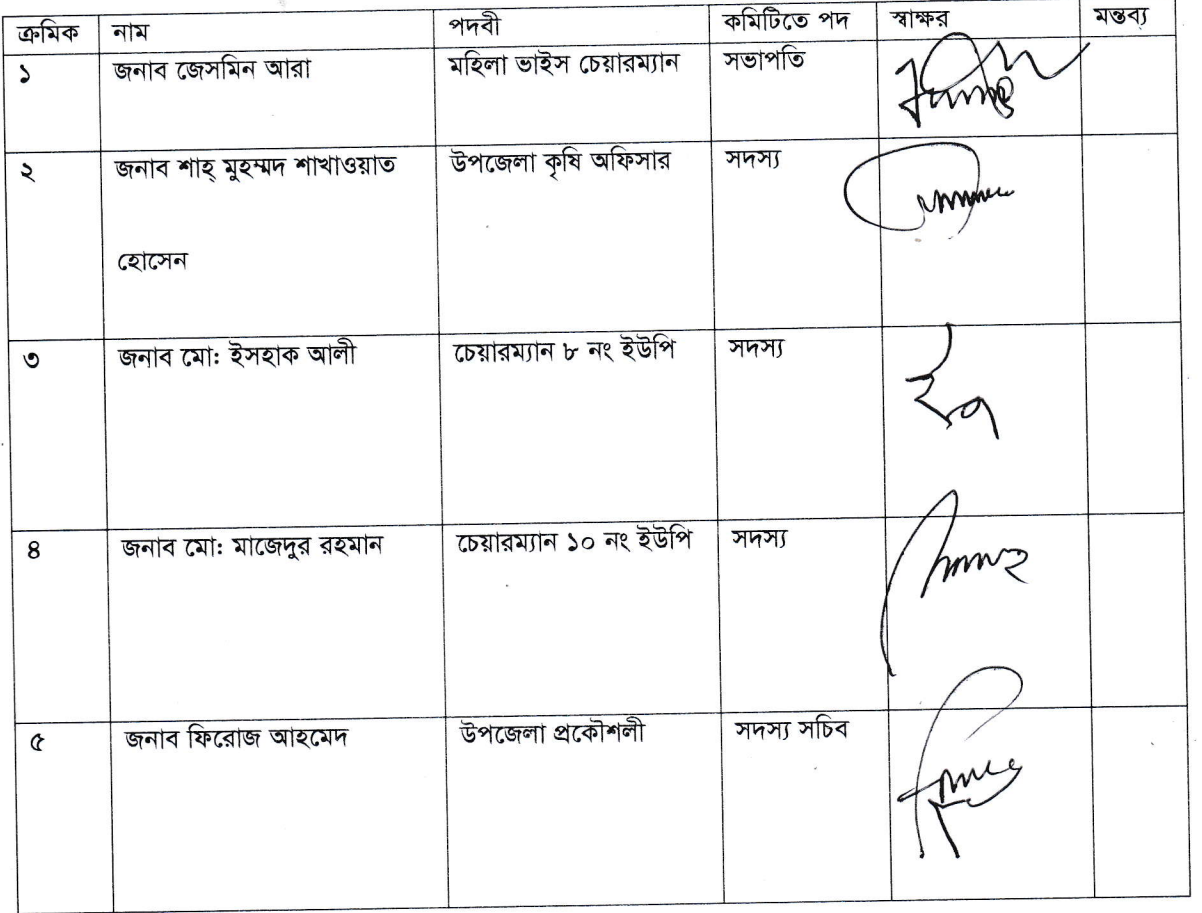 ক্রমিক নাম পদবী কমিটিতে পদ স্বাক্ষর মন্তব্য
১ জনাব জেসমিন আরা মহিলা ভাইস চেয়ারম্যান সভাপতি
২ জনাব শাহ্ মুহম্মদ শাখাওয়াত উপজেলা কৃষি অফিসার সদস্য
হোসেন
৩ জনাব মো: ইসহাক আলী চেয়ারম্যান ৮ নং ইউপি সদস্য
৪ জনাব মো: মাজেদুর রহমান চেয়ারম্যান ১০ নং ইউপি সদস্য
৫ জনাব ফিরোজ আহমেদ উপজেলা প্রকৌশলী সদস্য সচিব